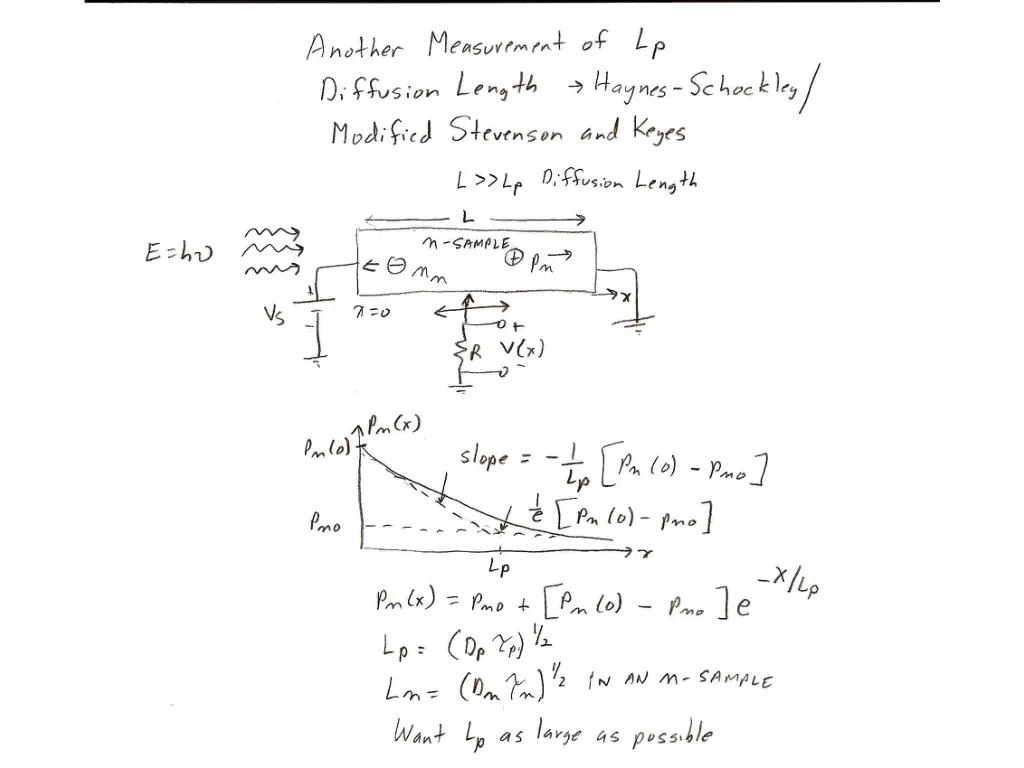 Another Measurement of Lp
Diffusion Length → Haynes-Schockley/
Modified Stevenson and Keyes
L >> Lp Diffusion Length
L
E = hν
n-SAMPLE
← ⊖ nn
⊕ Pn →
+
Vs
-
x=0
x
+
R V(x)
-
Pn(x)
Pn(0)
slope = -1/Lp [Pn(0) - Pno]
1/e [Pn(0) - Pno]
Pno
Lp
x
Pn(x) = Pno + [Pn(0) - Pno] e^-x/Lp
Lp = (Dp τp)^1/2
Ln = (Dn τn)^1/2 IN AN n-SAMPLE
Want Lp as large as possible